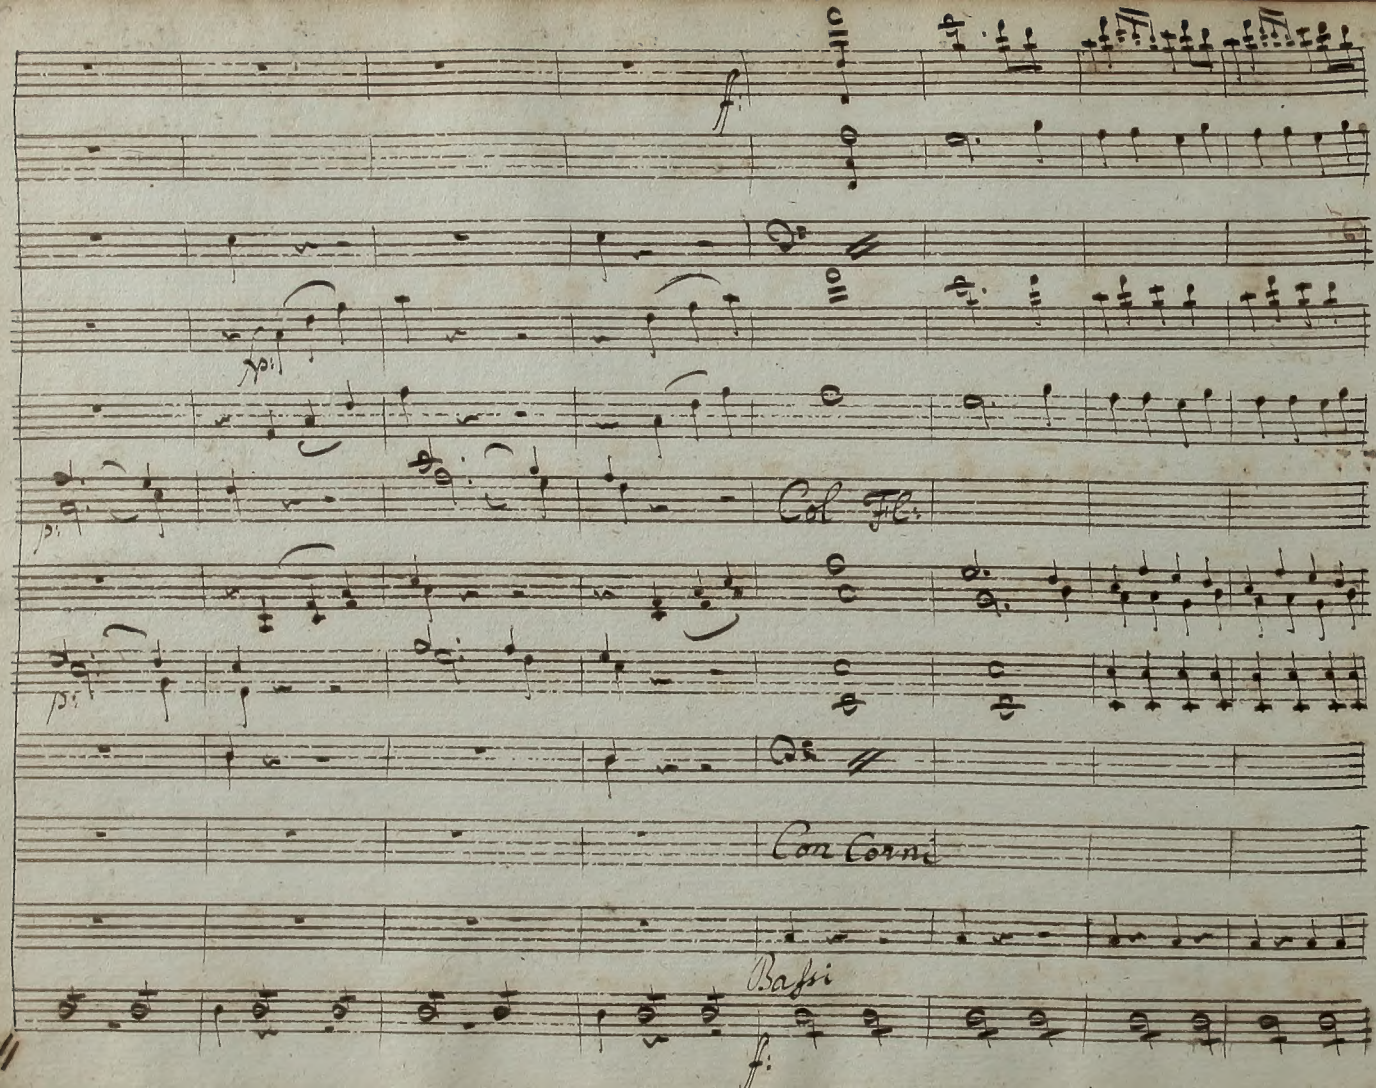 f:
p:
p:
Col Fl:
p:
Con Corni
Bassi
f: